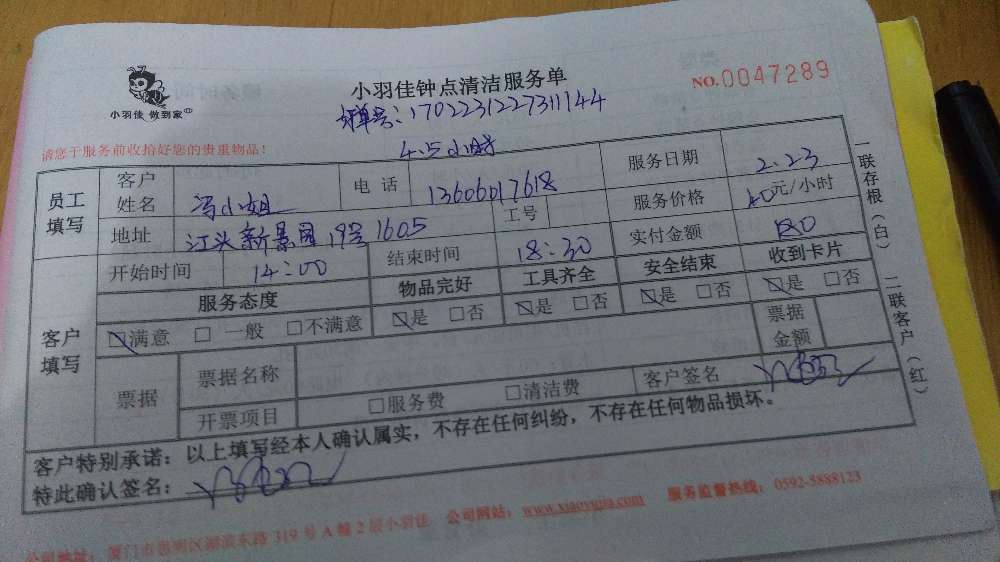 小羽佳 做到家
小羽佳钟点清洁服务单
NO.0047289
订单号:1702231227311144
请您于服务前收拾好您的贵重物品!
4.5小时
员工填写
客户姓名
冯小姐
电话
13606017618
服务日期
2.23
地址
江头新景园19号1605
工号
服务价格
40元/小时
开始时间
14:00
结束时间
18:30
实付金额
180
客户填写
服务态度
物品完好
工具齐全
安全结束
收到卡片
☑满意 □ 一般 □不满意
☑是 □否
☑是 □否
☑是 □否
☑是 □否
票据
票据名称
票据金额
开票项目
□服务费 □清洁费
客户签名
客户特别承诺:以上填写经本人确认属实,不存在任何纠纷,不存在任何物品损坏。
特此确认签名:
一联存根(白) 二联客户(红)
公司地址: 厦门市思明区湖滨东路 319 号 A 幢 2 层小羽佳 公司网站: www.xiaoyujia.com 服务监督热线: 0592-5888123